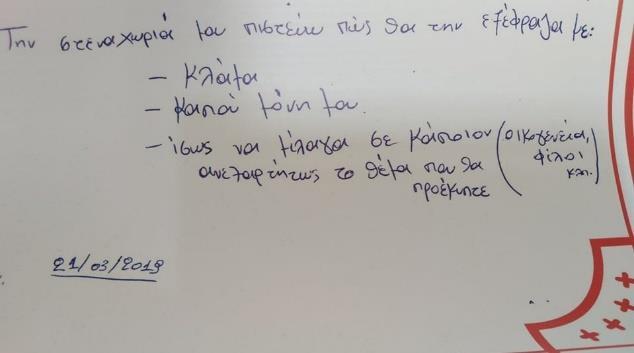 Την στεναχωριά μου πιστεύω πώς θα την εξέφραζα με:
– Κλάμα
– μόνη μου.
– ίσως να μίλαγα σε κάποιον (οικογένεια,
ανεξαρτήτως το θέμα που θα φίλοι
προέκυπτε κλπ.)
21/03/2019